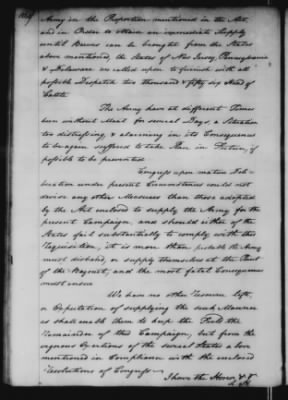 Army in the Proportion mentioned in the Act,
and in Order to Obtain an immediate Supply
until Beeves can be brought from the States
above mentioned, the States of New Jersey, Pennsylvania
& Delaware are called upon to furnish with all
possible Despatch two thousand & fifty six Head of
Cattle.
The Army have at different Times
been without Meat for several Days, a Situation
too distressing, & alarming in its Consequences
to be again suffered to take Place in Future, if
possible to be prevented.
Congress upon mature Delib-
eration under present Circumstances could not
devise any other Measures than those adopted
by the Act enclosed to supply the Army for the
present Campaign, and should either of the
States fail substantially to comply with this
Requisition, it is more than probable the Army
must disband, or supply themselves at the Point
of the Bayonet, and the most fatal Consequences
must ensue.
We have no other Resource left,
or Expectation of supplying them in such Manner
as shall enable them to keep the Field the
Remainder of this Campaign, but from the
vigorous Exertions of the several States above
mentioned in Compliance with the enclosed
Resolutions of Congress.
I have the Honor &c